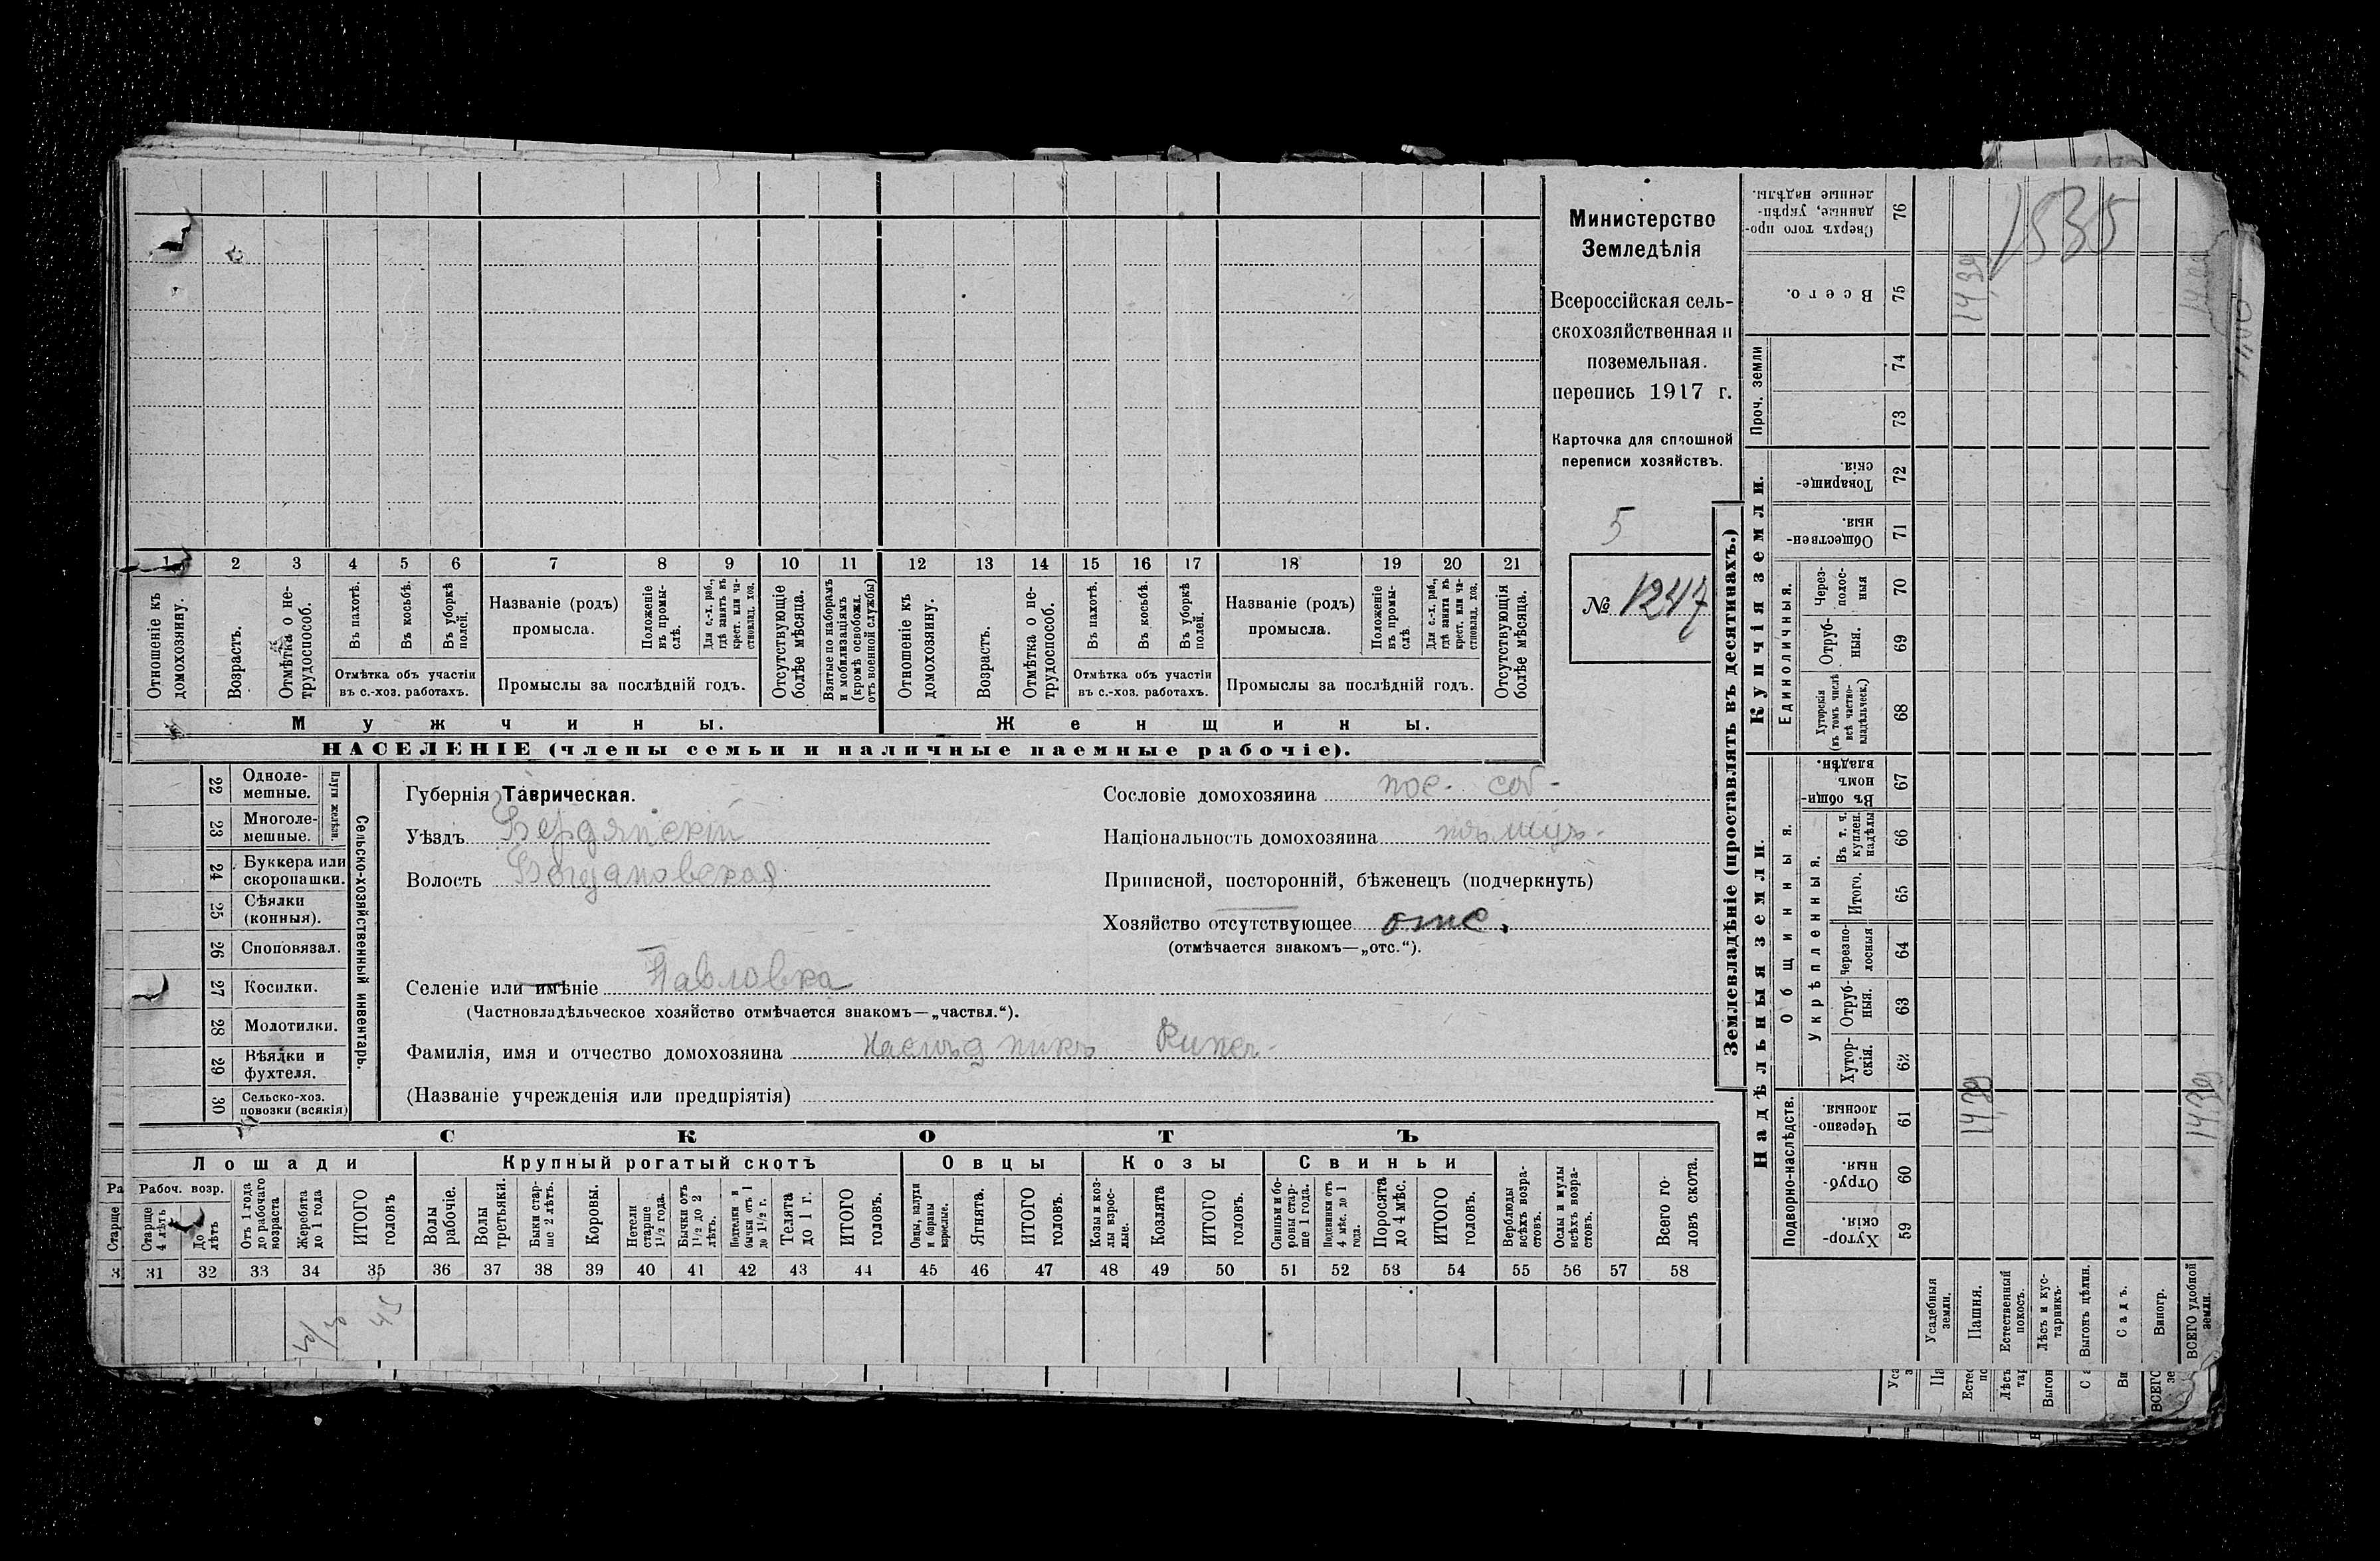 Министерство
Земледѣлія
Всероссійская сель-
скохозяйственная и
поземельная.
перепись 1917 г.
Карточка для сплошной
переписи хозяйствъ.
5
№ 1247
1 2 3 4 5 6 7 8 9 10 11 12 13 14 15 16 17 18 19 20 21
Отношеніе къ домохозяину.
Возрастъ.
Отмѣтка о не-трудоспособ.
Въ пахотѣ.
Въ косьбѣ.
Въ уборкѣ полей.
Отмѣтка объ участіи въ с.-хоз. работахъ.
Названіе (родъ) промысла.
Положеніе въ промы-слѣ.
Для с.-х. раб., гдѣ занятъ въ крест. или ча-стновлад. хоз.
Промыслы за послѣдній годъ.
Отсутствующіе болѣе мѣсяца.
Взятые по наборамъ и мобилизаціямъ (кромѣ освобожд. отъ военной службы)
Отношеніе къ домохозяину.
Возрастъ.
Отмѣтка о не-трудоспособ.
Въ пахотѣ.
Въ косьбѣ.
Въ уборкѣ полей.
Отмѣтка объ участіи въ с.-хоз. работахъ.
Названіе (родъ) промысла.
Положеніе въ промы-слѣ.
Для с.-х. раб., гдѣ занята въ крест. или ча-стновлад. хоз.
Промыслы за послѣдній годъ.
Отсутствующія болѣе мѣсяца.
Мужчины.
Женщины.
НАСЕЛЕНІЕ (члены семьи и наличные наемные рабочіе).
22 Одноле-мешные.
23 Многоле-мешные.
Плуги желѣзн.
24 Буккера или скоропашки.
25 Сѣялки (конныя).
26 Сноповязал.
27 Косилки.
28 Молотилки.
29 Вѣялки и фухтеля.
30 Сельско-хоз. повозки (всякія)
Сельско-хозяйственный инвентарь.
Губернія Таврическая.
Уѣздъ Бердянскій
Волость Богдановская
Сословіе домохозяина пос. соб.
Національность домохозяина нѣмцъ.
Приписной, посторонній, бѣженецъ (подчеркнуть)
Хозяйство отсутствующее отс.
(отмѣчается знакомъ—„отс.“).
Селеніе или имѣніе Павловка
(Частновладѣльческое хозяйство отмѣчается знакомъ—„частвл.“).
Фамилія, имя и отчество домохозяина Наслѣдники
(Названіе учрежденія или предпріятія)
СКОТЪ
Лошади
Крупный рогатый скотъ
Овцы
Козы
Свиньи
Рабоч. возр.
Старше 4 лѣтъ
До лѣтъ
Отъ 1 года до рабочаго возраста
Жеребята до 1 года
ИТОГО головъ
Волы рабочіе.
Волы третьяки.
Быки стар-ше 2 лѣтъ.
Коровы.
Нетели старше 1 1/2 года.
Бычки отъ 1 1/2 до 2 лѣтъ.
Подтелки и бычки отъ 1 до 1 1/2 г.
Телята до 1 г.
ИТОГО головъ.
Овцы, валухи и бараны взрослые.
Ягнята.
ИТОГО головъ.
Козы и коз-лы взрос-лые.
Козлята
ИТОГО головъ.
Свиньи и бо-ровы стар-ше 1 года.
Подсвинки отъ 4 мѣс. до 1 года.
Поросята до 4 мѣс.
ИТОГО головъ.
Верблюды всѣхъ возра-стовъ.
Ослы и мулы всѣхъ возра-стовъ.
Всего го-ловъ скота.
31 32 33 34 35 36 37 38 39 40 41 42 43 44 45 46 47 48 49 50 51 52 53 54 55 56 57 58
45
Землевладѣніе (проставлять въ десятинахъ.)
Надѣльныя земли.
Купчія земли.
Проч. земли
Подворно-наслѣдств.
Общинныя.
Укрѣпленныя.
Единоличныя.
Хутор-скія. 59
Отруб-ныя. 60
Черезпо-лосныя. 61
Хутор-скія. 62
Отруб-ныя. 63
Черезпо-лосныя 64
Итого. 65
Въ т. ч. куплен. надѣлы 66
Въ общин-номъ владѣн. 67
Хуторскія (въ томъ числѣ всѣ частно-владѣльческ.) 68
Отруб-ныя. 69
Через-полос-ныя 70
Обществен-ныя. 71
Товарище-скія. 72
73
74
Всего. 75
Сверхъ того про-данные, укрѣп-ленные надѣлы. 76
Усадебныя земли.
Пашня.
Естественный покосъ.
Лѣсъ и кус-тарникъ.
Выгонъ цѣлин.
Садъ.
Виногр.
ВСЕГО удобной земли.
14,39
14,39
14,39
1535